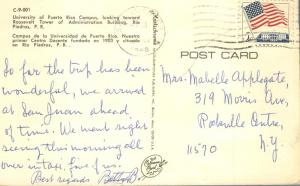 C-9-001
University of Puerto Rico Campus, looking toward
Roosevelt Tower of Administration Building, Rio
Piedras, P. R.
Campus de la Universidad de Puerto Rico. Nuestro
primer Centro Docente fundado en 1903 y situado
en Rio Piedras, P. R.
POST CARD
So far the trip has been
wonderful, we arrived
at San Juan ahead
of time. We went sight
seeing this morning all
over in taxi. Love
Best regards Betty B.
Mrs. Mabelle Applegate,
319 Morris Ave,
Rockville Centre,
N.Y
11570